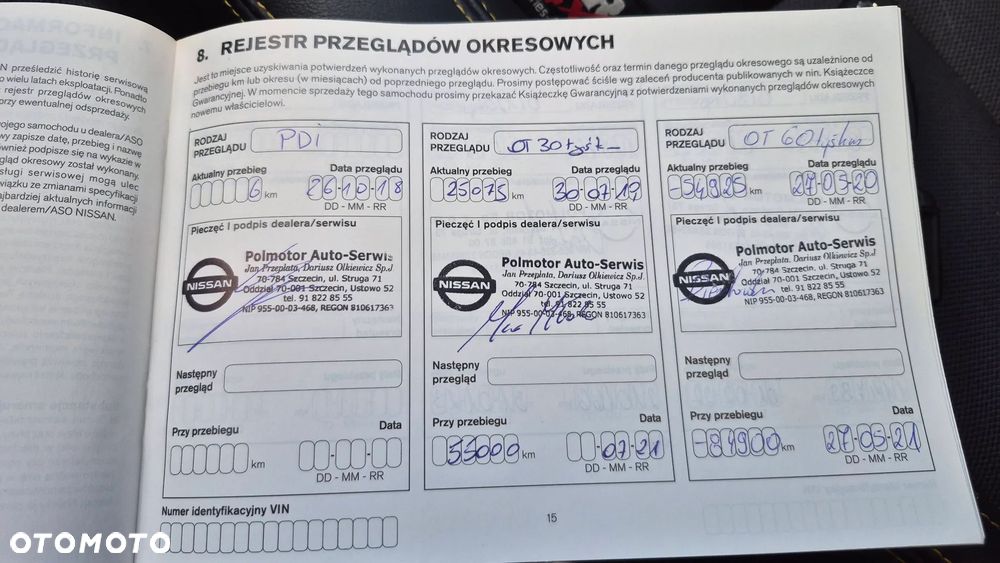 N prześledzić historię serwisową
o wielu latach eksploatacji. Ponadto
rejestr przeglądów okresowych
orzy ewentualnej odsprzedaży.
ojego samochodu u dealera/ASO
wy zapisze datę, przebieg i nazwę
ównież podpisze się na wykazie w
gląd okresowy został wykonany.
sługi serwisowej mogą ulec
wiązku ze zmianami specyfikacji
ajbardziej aktualnych informacji
dealerem/ASO NISSAN.
8. REJESTR PRZEGLĄDÓW OKRESOWYCH
Jest to miejsce uzyskiwania potwierdzeń wykonanych przeglądów okresowych. Częstotliwość oraz termin danego przeglądu okresowego są uzależnione od
przebiegu km lub okresu (w miesiącach) od poprzedniego przeglądu. Prosimy postępować ściśle wg zaleceń producenta publikowanych w nin. Książeczce
Gwarancyjnej. W momencie sprzedaży tego samochodu prosimy przekazać Książeczkę Gwarancyjną z potwierdzeniami wykonanych przeglądów okresowych
nowemu właścicielowi.
RODZAJ
PRZEGLĄDU PDI
Aktualny przebieg Data przeglądu
6 km 26-10-18
DD - MM - RR
Pieczęć I podpis dealera/serwisu
Polmotor Auto-Serwis
Jan Przeplata, Dariusz Olkiewicz Sp.J
70-784 Szczecin, ul. Struga 71
Oddział 70-001 Szczecin, Ustowo 52
tel. 91 822 85 55
NIP 955-00-03-468, REGON 810617363
NISSAN
Następny
przegląd
Przy przebiegu Data
km
DD - MM - RR
Numer identyfikacyjny VIN
RODZAJ
PRZEGLĄDU OT 30 tyś
Aktualny przebieg Data przeglądu
25075 km 30-07-19
DD - MM - RR
Pieczęć I podpis dealera/serwisu
Polmotor Auto-Serwis
Jan Przeplata, Dariusz Olkiewicz Sp.J
70-784 Szczecin, ul. Struga 71
Oddział 70-001 Szczecin, Ustowo 52
tel. 91 822 85 55
NIP 955-00-03-468, REGON 810617363
NISSAN
Następny
przegląd
Przy przebiegu Data
55000 km 07-21
DD - MM - RR
RODZAJ
PRZEGLĄDU OT 60 tyś km
Aktualny przebieg Data przeglądu
54925 km 27-05-20
DD - MM - RR
Pieczęć I podpis dealera/serwisu
Polmotor Auto-Serwis
Jan Przeplata, Dariusz Olkiewicz Sp.J
70-784 Szczecin, ul. Struga 71
Oddział 70-001 Szczecin, Ustowo 52
tel. 91 822 85 55
NIP 955-00-03-468, REGON 810617363
NISSAN
Następny
przegląd
Przy przebiegu Data
84900 km 27-05-21
DD - MM - RR
15
OTOMOTO